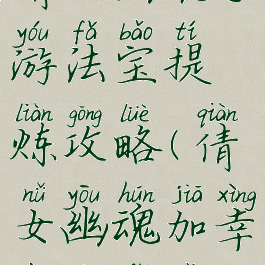 yóu fǎ bǎo tí
游法宝提
liàn gōng lüè qiàn
炼攻略(倩
nǚ yōu hún jiā xìng
女幽魂加幸